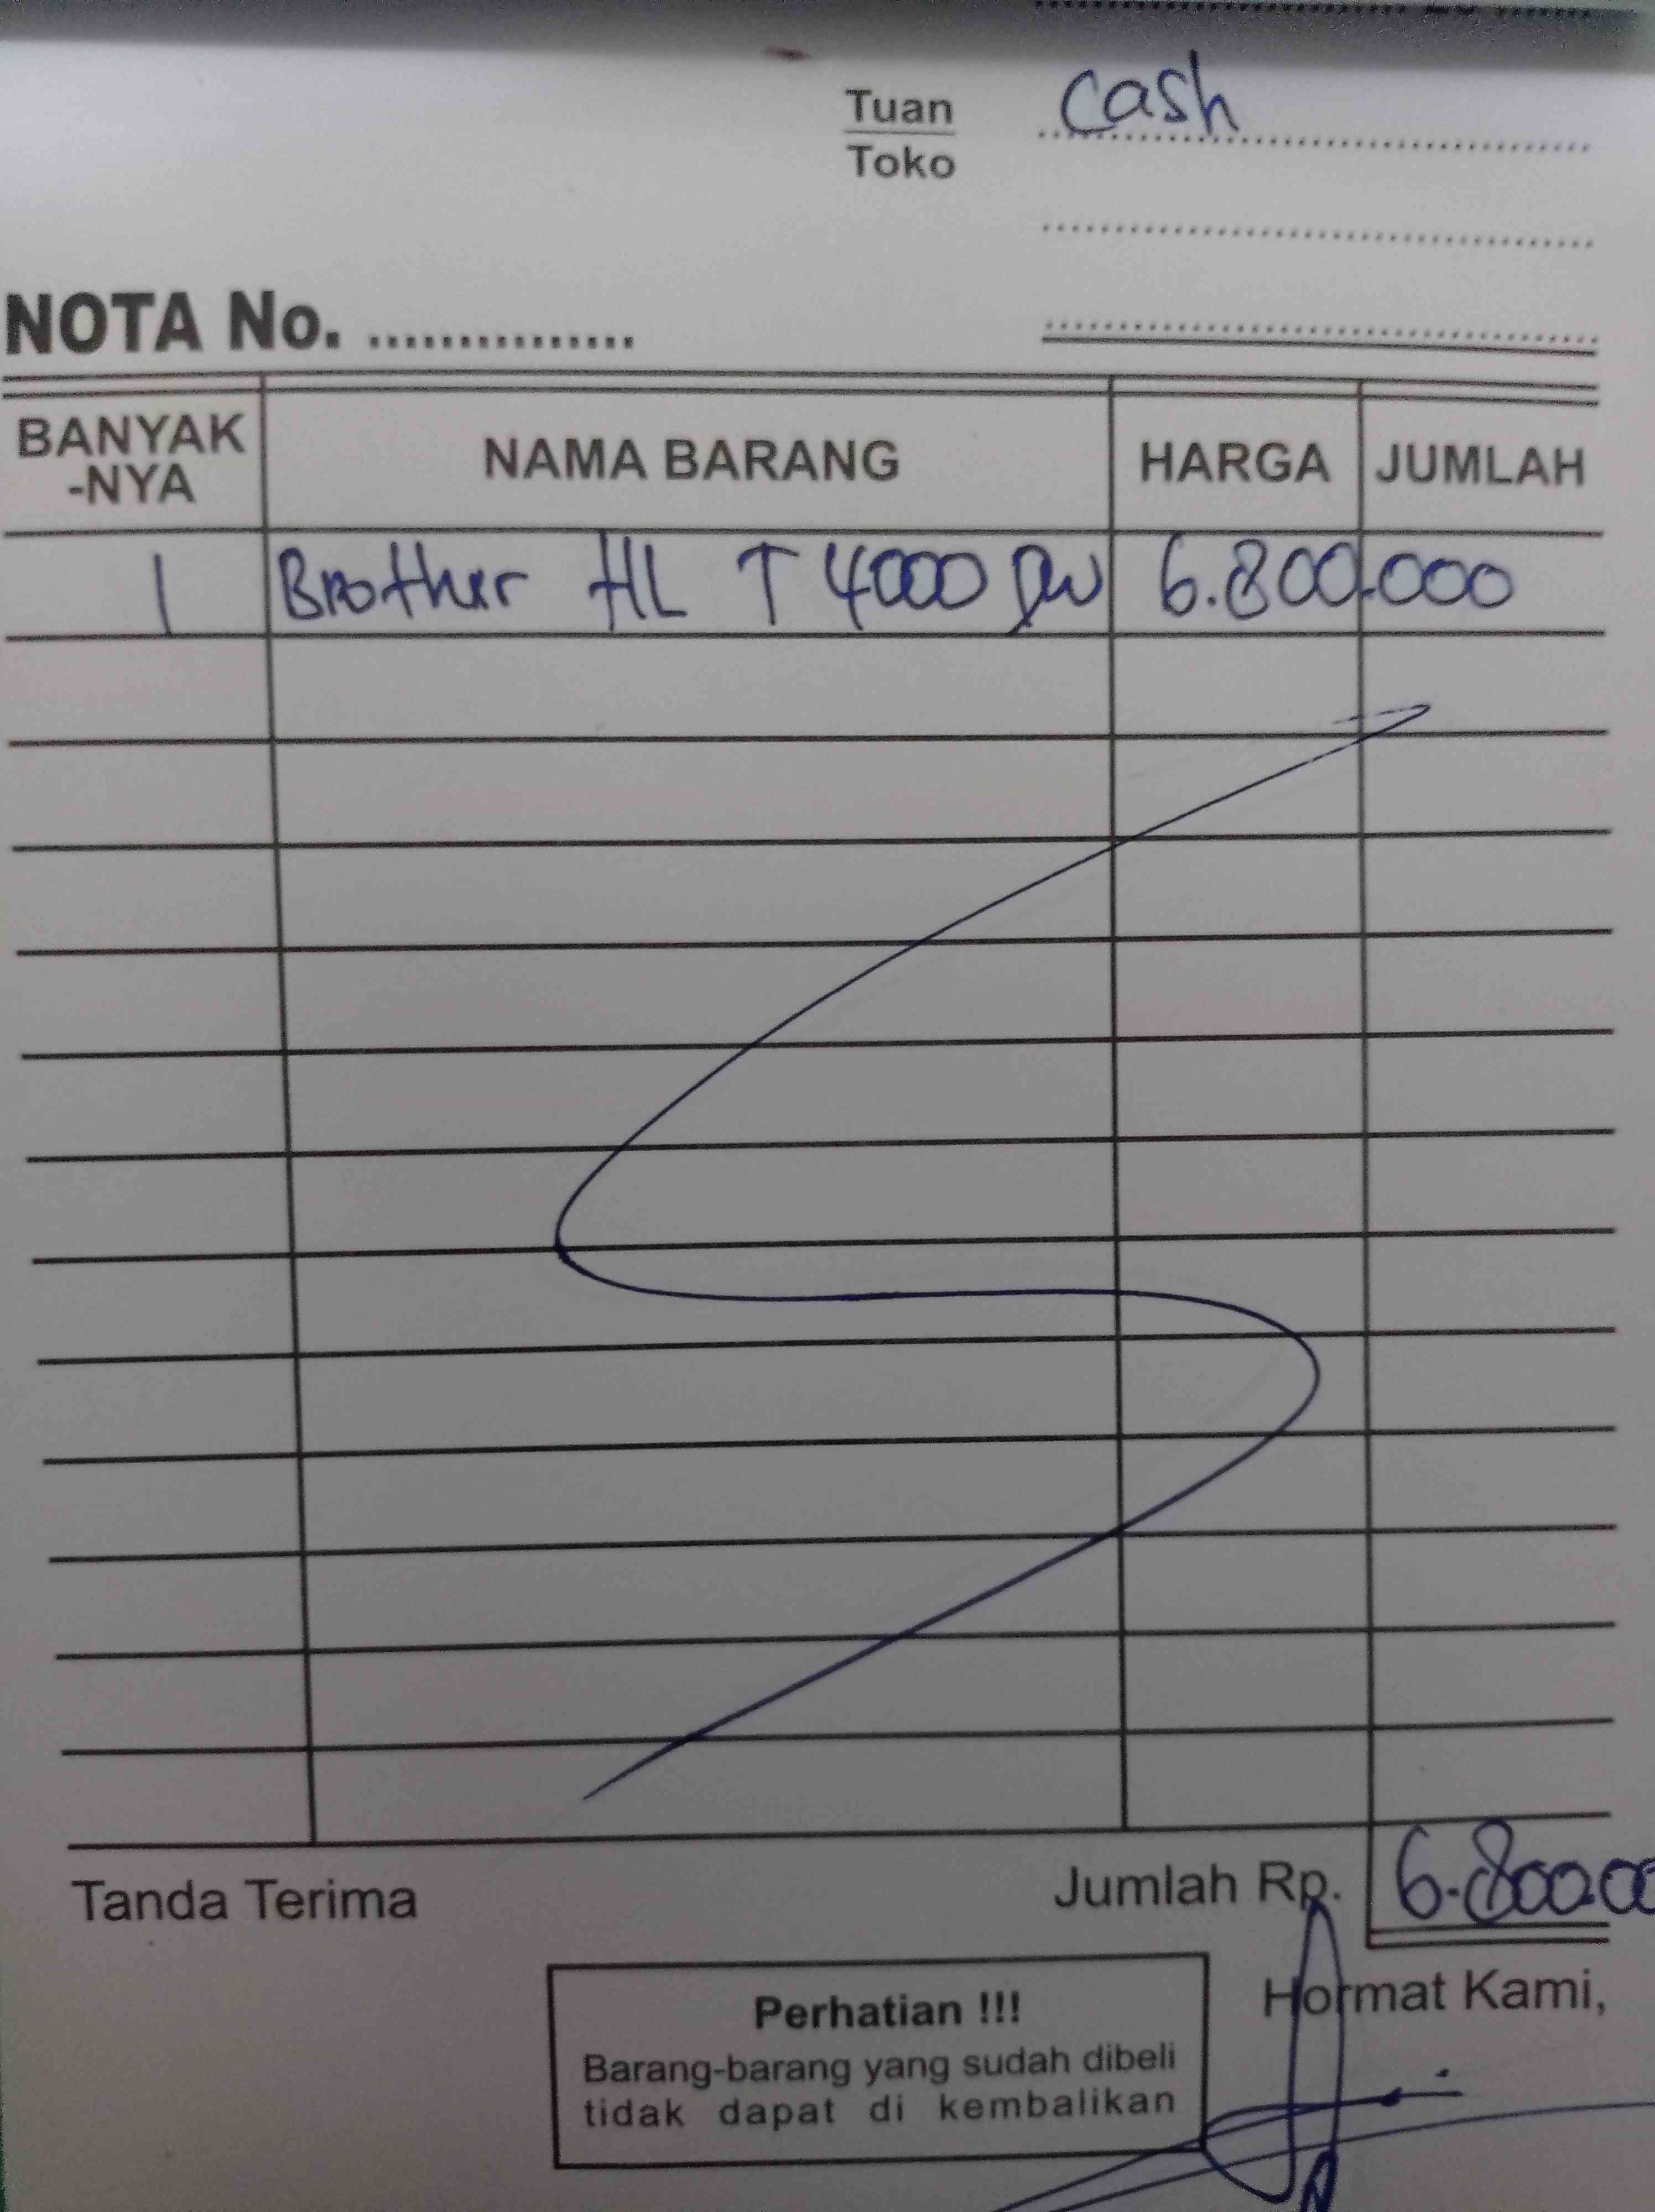 Tuan cash
Toko
NOTA No. ...............
BANYAK-NYA NAMA BARANG HARGA JUMLAH
1 Brother HL T 4000 DW 6.800.000
Tanda Terima Jumlah Rp. 6.800.00
Hormat Kami,
Perhatian !!!
Barang-barang yang sudah dibeli
tidak dapat di kembalikan